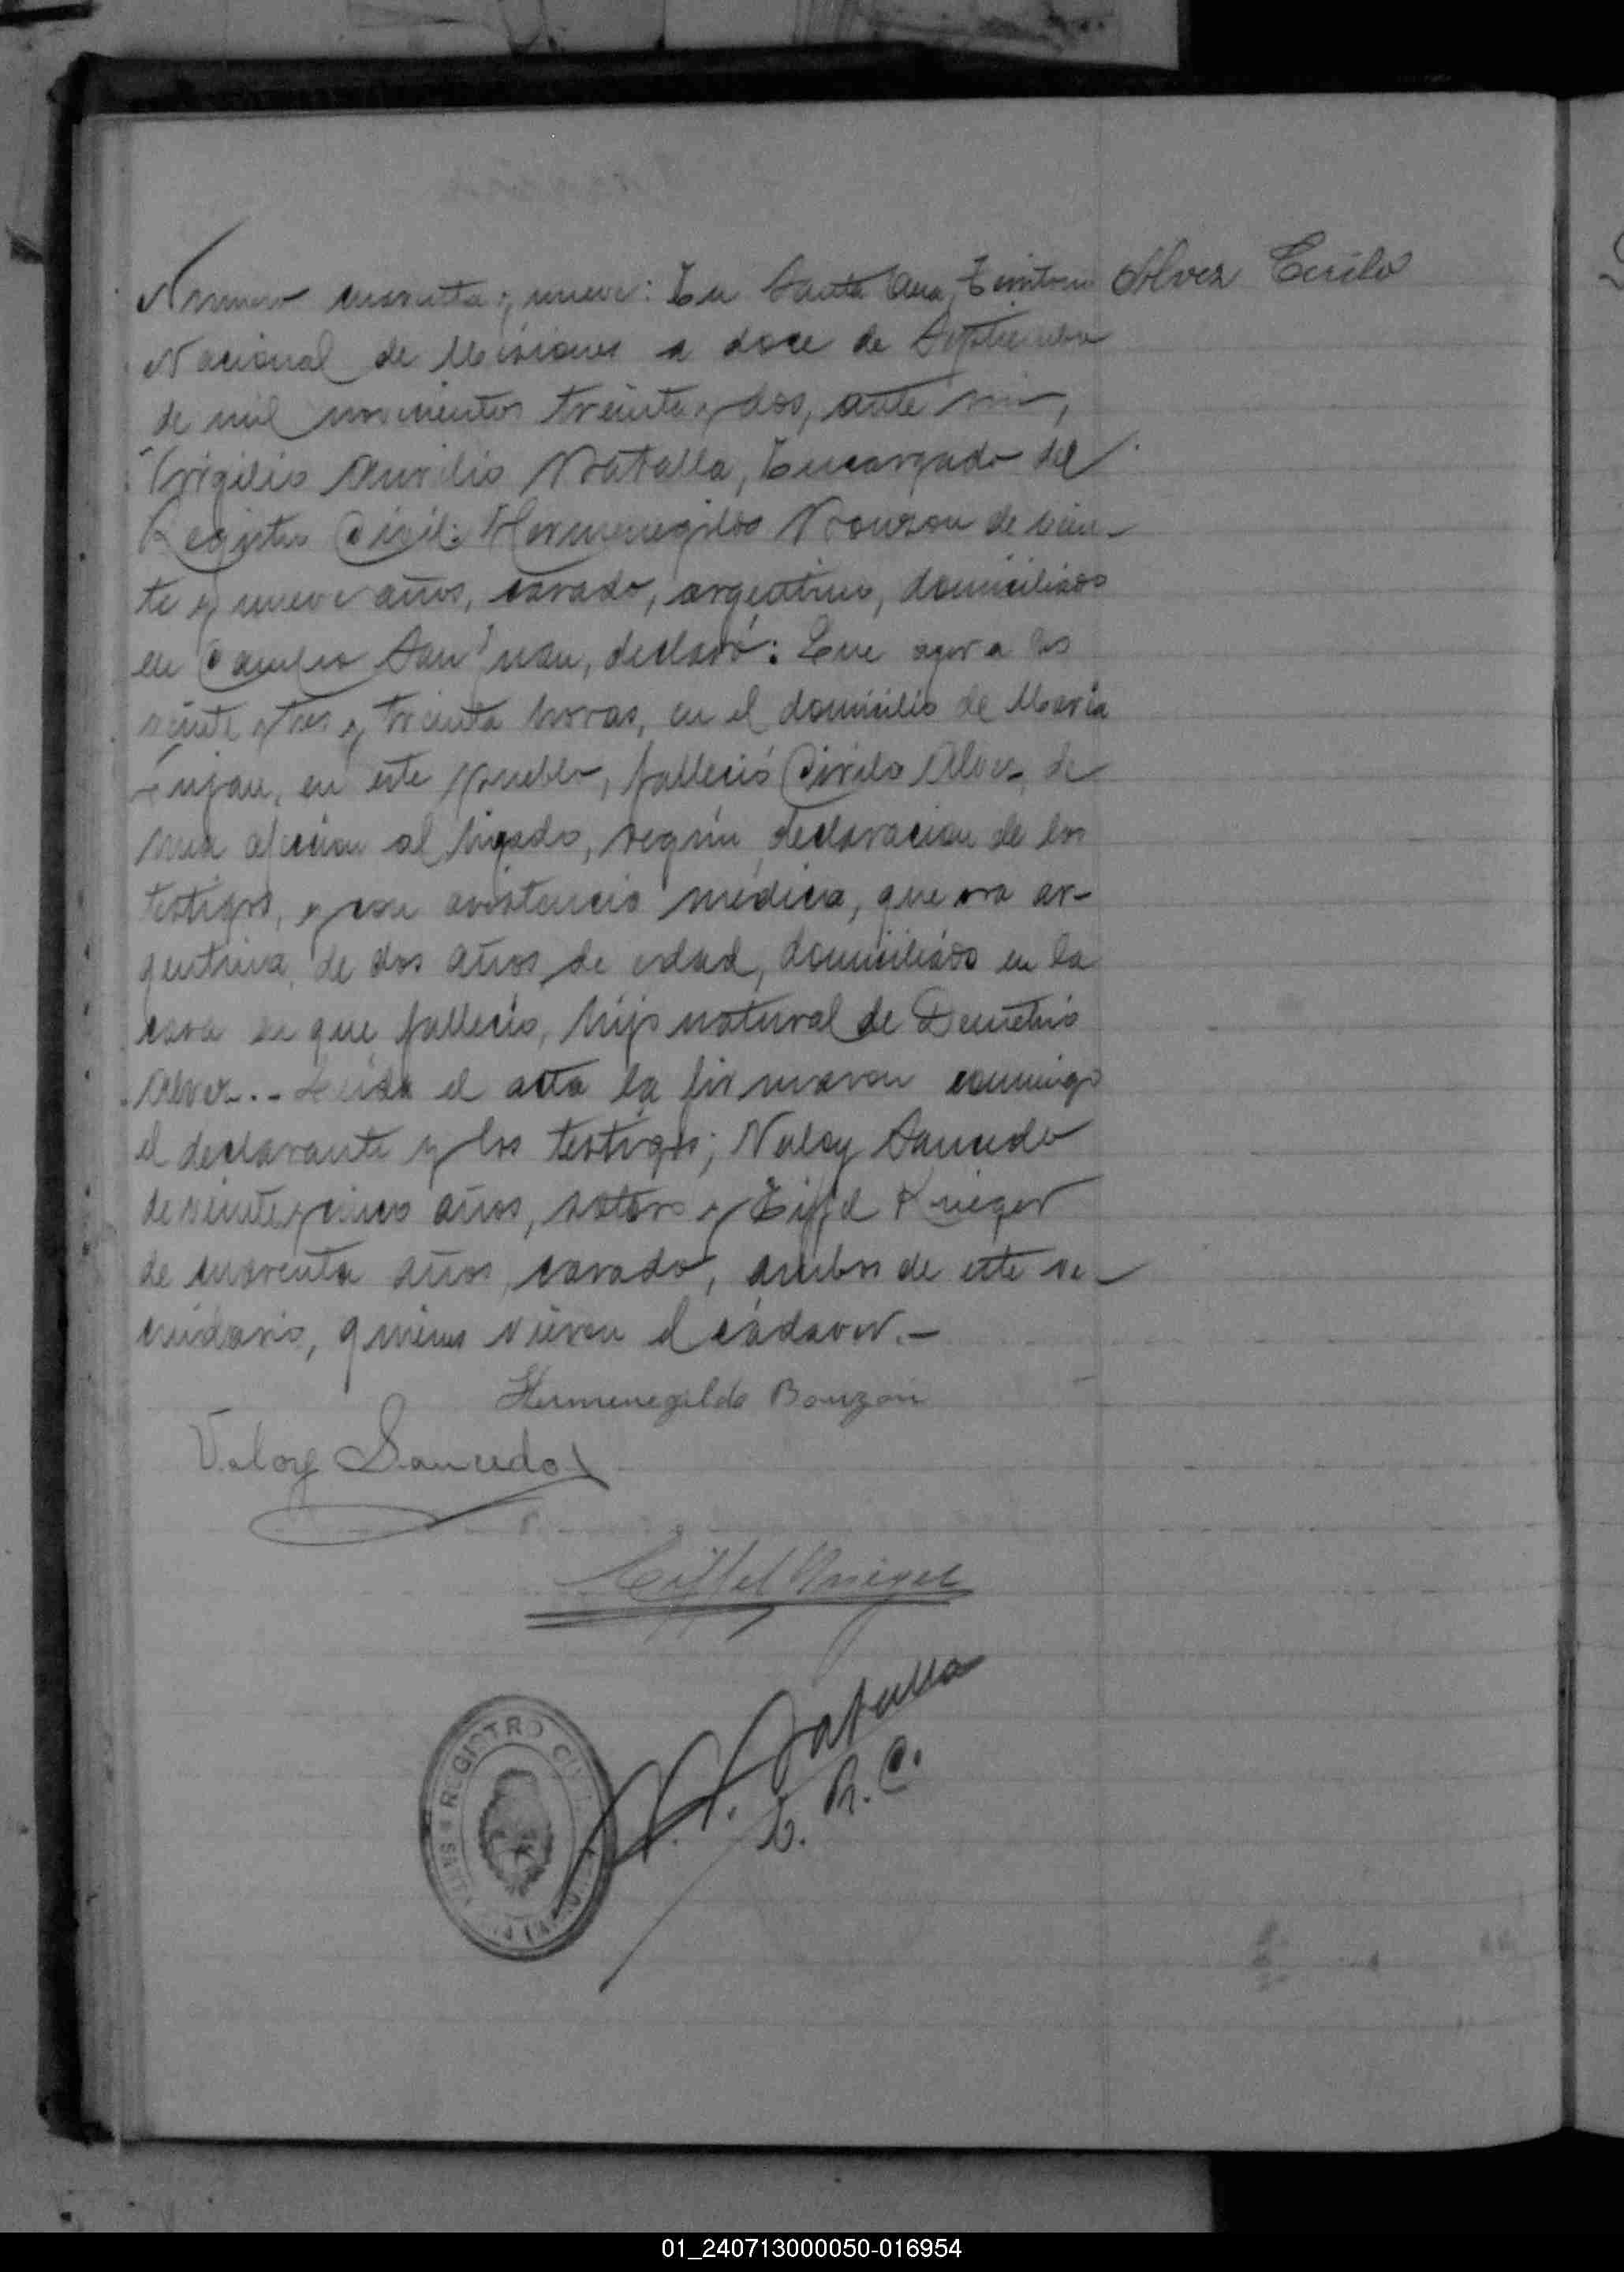 Numero cuarenta y nueve: En Santa Ana, Territorio
Alvez Cirilo
Nacional de Misiones a doce de Septiembre
de mil novecientos treinta y dos, ante mi,
Virgilio Aurelio Batalla, Encargado del
Registro Civil: Hermenegildo Bouzon de vein-
te y nueve años, casado, argentino, domiciliado
en Campo San Juan, declaró: Que ayer a las
veinte y tres y treinta horas, en el domicilio de Maria
Lujan, en este Pueblo, falleció Cirilo Alvez, de
una afeccion al higado, según declaracion de los
testigos, y con asistencia médica, que era ar-
gentino, de dos años de edad, domiciliado en la
casa en que fallecio, hijo natural de Demetrio
Alvez.- Leida el acta la firmaron conmigo
el declarante y los testigos; Valoy Saucedo
de veinte y cinco años, soltero y Eiffel Krieger
de cuarenta años, casado, ambos de este ve-
cindario, quienes vieron el cádaver.-
Hermenegildo Bouzon
Valoy Saucedo
Eiffel Krieger
V. A. Batalla
E. R. C.
REGISTRO CIVIL
SANTA ANA
01_240713000050-016954